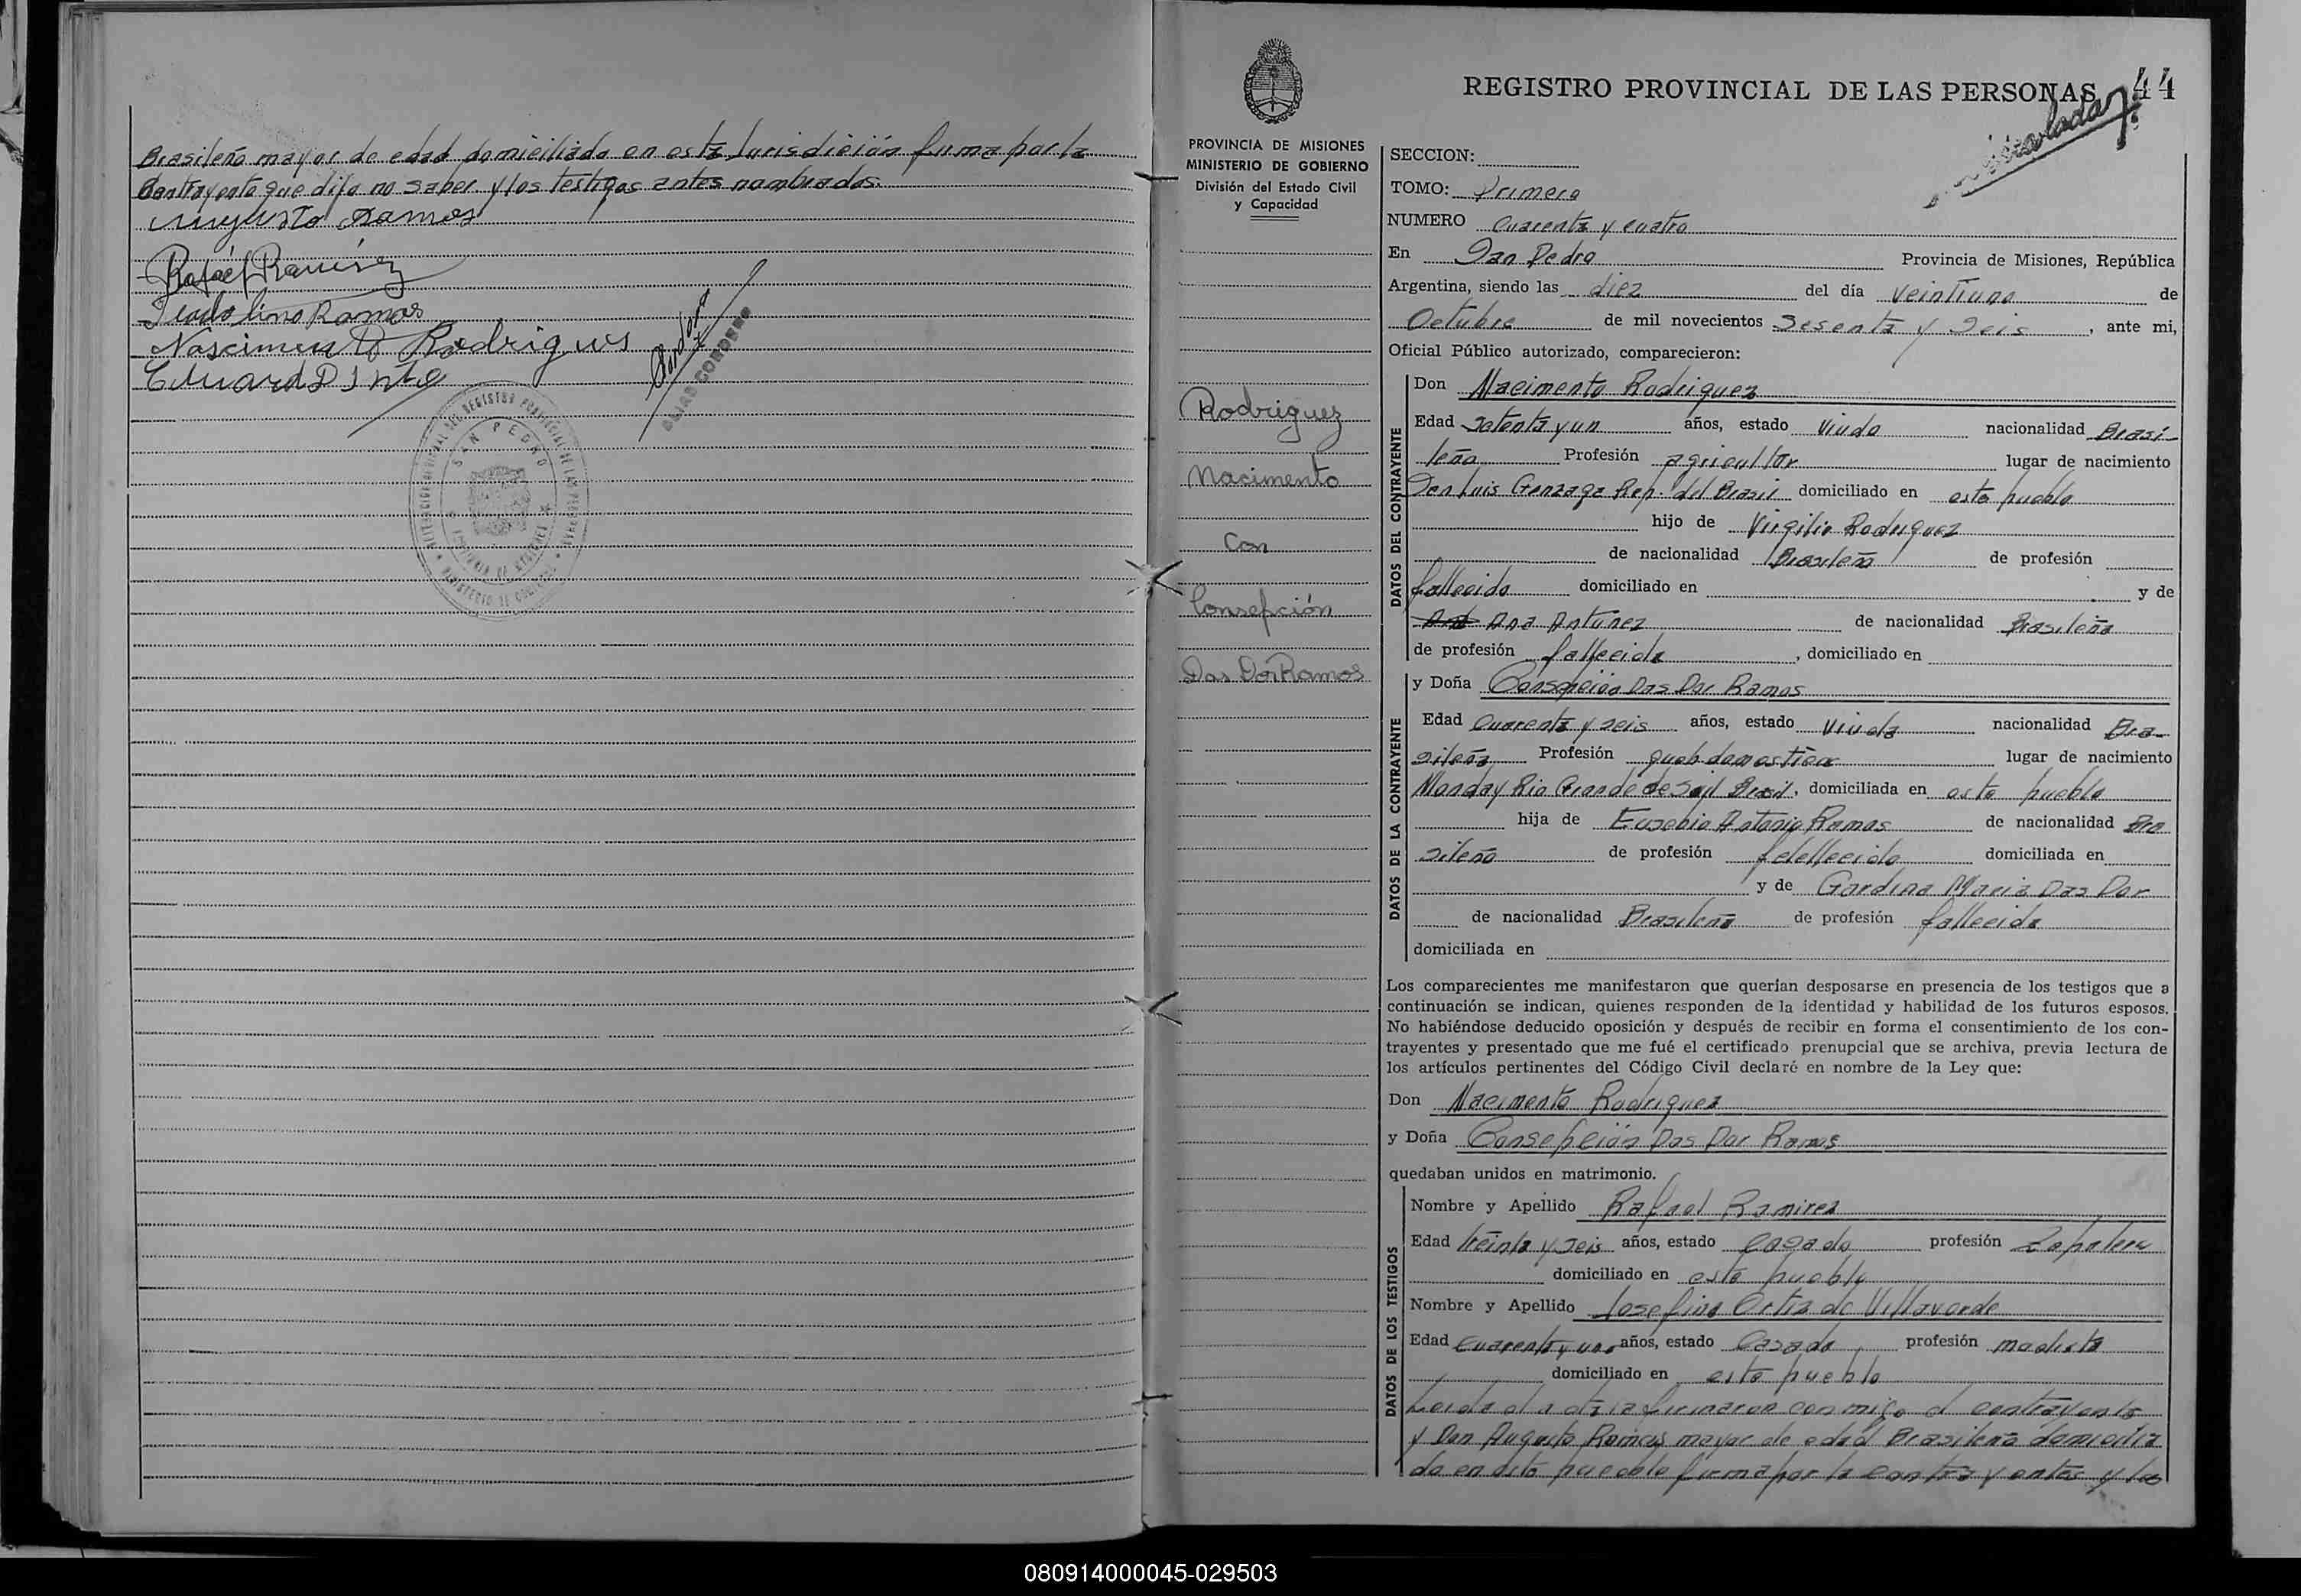 Brasileño mayor de edad domiciliado en esta Jurisdición firma por la
Contrayente que dijo no saber y los testigos antes nombrados.
Augusto Ramos
Rafael Ramirez
Teodolino Ramos
Nascimento Rodrigues
SAN PEDRO
REGISTRO PROVINCIAL DE LAS PERSONAS 44
PROVINCIA DE MISIONES
MINISTERIO DE GOBIERNO
División del Estado Civil
y Capacidad
Rodriguez
Nacimento
Con
Consepción
Das Dor Ramos
SECCION:
TOMO: Primero
NUMERO Cuarenta y cuatro
En San Pedro Provincia de Misiones, República
Argentina, siendo las diez del día veintiuno de
Octubre de mil novecientos Sesenta y Seis, ante mi,
Oficial Público autorizado, comparecieron:
DATOS DEL CONTRAYENTE
Don Nacimento Rodriguez
Edad Setenta y un años, estado Viudo nacionalidad Brasi-
leño Profesión agricultor lugar de nacimiento
San Luis Gonzaga Rep. del Brasil domiciliado en este pueblo
hijo de Virgilio Rodriguez
de nacionalidad Brasileña de profesión
fallecido domiciliado en y de
Ana Antunez de nacionalidad Brasileña
de profesión fallecida, domiciliado en
DATOS DE LA CONTRAYENTE
y Doña Consepción Das Dor Ramos
Edad Cuarenta y seis años, estado Viuda nacionalidad Bra-
sileña Profesión lugar de nacimiento
Monday Rio Grande de Sul Brasil, domiciliada en este pueblo
hija de Eusebio Antonio Ramos de nacionalidad Bra
sileño de profesión domiciliada en
y de Gardina Maria Das Dor
de nacionalidad Brasileña de profesión fallecida
domiciliada en
Los comparecientes me manifestaron que querían desposarse en presencia de los testigos que a
continuación se indican, quienes responden de la identidad y habilidad de los futuros esposos.
No habiéndose deducido oposición y después de recibir en forma el consentimiento de los con-
trayentes y presentado que me fué el certificado prenupcial que se archiva, previa lectura de
los artículos pertinentes del Código Civil declaré en nombre de la Ley que:
Don Nacimento Rodriguez
y Doña Consepción Das Dor Ramos
quedaban unidos en matrimonio.
DATOS DE LOS TESTIGOS
Nombre y Apellido Rafael Ramirez
Edad treinta y seis años, estado Casado profesión Zapatero
domiciliado en este pueblo
Nombre y Apellido Josefina Ortiz de Villaverde
Edad Cuarenta y uno años, estado Casada profesión modista
domiciliado en este pueblo
Leida el acta la firmaron conmigo el contrayente
y Don Augusto Ramos mayor de edad Brasileño domicilia
do en este pueblo firma por la contrayentes y los
080914000045-029503